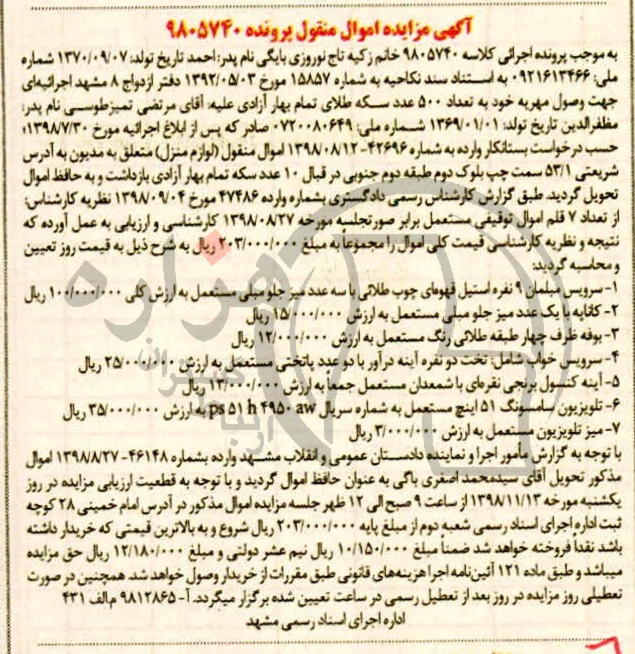 آگهی مزایده اموال منقول پرونده ۹۸۰۵۷۴۰
به موجب پرونده اجرائی کلاسه ۹۸۰۵۷۴۰ خانم زکیه تاج نوروزی بایگی نام پدر: احمد تاریخ تولد: ۱۳۷۰/۰۹/۰۷ شماره
ملی: ۰۹۲۱۶۱۳۴۶۶ به استناد سند نکاحیه به شماره ۱۵۸۵۷ مورخ ۱۳۹۲/۰۵/۰۳ دفتر ازدواج ۸ مشهد اجرائیه‌ای
جهت وصول مهریه خود به تعداد ۵۰۰ عدد سکه طلای تمام بهار آزادی علیه: آقای مرتضی تمیزطوسی نام پدر:
مظفرالدین تاریخ تولد: ۱۳۶۹/۰۱/۰۱ شماره ملی: ۰۷۲۰۰۸۰۶۴۹ صادر که پس از ابلاغ اجرائیه مورخ ۱۳۹۸/۷/۳۰؛
حسب درخواست بستانکار وارده به شماره ۴۲۶۹۶-۱۳۹۸/۰۸/۱۲ اموال منقول (لوازم منزل) متعلق به مدیون به آدرس
شریعتی ۵۳/۱ سمت چپ بلوک دوم طبقه دوم جنوبی در قبال ۱۰ عدد سکه تمام بهار آزادی بازداشت و به حافظ اموال
تحویل گردید. طبق گزارش کارشناس رسمی دادگستری بشماره وارده ۴۷۴۸۶ مورخ ۱۳۹۸/۰۹/۰۴ نظریه کارشناس:
از تعداد ۷ قلم اموال توقیفی مستعمل برابر صورتجلسه مورخه ۱۳۹۸/۰۸/۲۷ کارشناسی و ارزیابی به عمل آورده که
نتیجه و نظریه کارشناسی قیمت کلی اموال را مجموعاً به مبلغ ۲۰۳/۰۰۰/۰۰۰ ریال به شرح ذیل به قیمت روز تعیین
و محاسبه گردید:
۱- سرویس مبلمان ۹ نفره استیل قهوه‌ای چوب طلائی با سه عدد میز جلو مبلی مستعمل به ارزش کلی ۱۰۰/۰۰۰/۰۰۰ ریال
۲- کاناپه با یک عدد میز جلو مبلی مستعمل به ارزش ۱۵/۰۰۰/۰۰۰ ریال
۳- بوفه ظرف چهار طبقه طلائی رنگ مستعمل به ارزش ۱۲/۰۰۰/۰۰۰ ریال
۴- سرویس خواب شامل: تخت دو نفره آینه درآور با دو عدد پاتختی مستعمل به ارزش ۲۵/۰۰۰/۰۰۰ ریال
۵- آینه کنسول برنجی نقره‌ای با شمعدان مستعمل جمعاً به ارزش ۱۳/۰۰۰/۰۰۰ ریال
۶- تلویزیون سامسونگ ۵۱ اینچ مستعمل به شماره سریال ps ۵۱ h ۴۹۵۰ aw به ارزش ۳۵/۰۰۰/۰۰۰ ریال
۷- میز تلویزیون مستعمل به ارزش ۳/۰۰۰/۰۰۰ ریال
با توجه به گزارش مأمور اجرا و نماینده دادستان عمومی و انقلاب مشهد وارده بشماره ۴۶۱۴۸-۱۳۹۸/۸/۲۷ اموال
مذکور تحویل آقای سیدمحمد اصغری باگی به عنوان حافظ اموال گردید و با توجه به قطعیت ارزیابی مزایده در روز
یکشنبه مورخه ۱۳۹۸/۱۱/۱۳ از ساعت ۹ صبح الی ۱۲ ظهر جلسه مزایده اموال مذکور در آدرس امام خمینی ۲۸ کوچه
ثبت اداره اجرای اسناد رسمی شعبه دوم از مبلغ پایه ۲۰۳/۰۰۰/۰۰۰ ریال شروع و به بالاترین قیمتی که خریدار داشته
باشد نقداً فروخته خواهد شد ضمناً مبلغ ۱۰/۱۵۰/۰۰۰ ریال نیم عشر دولتی و مبلغ ۱۲/۱۸۰/۰۰۰ ریال حق مزایده
میباشد و طبق ماده ۱۲۱ آئین‌نامه اجرا هزینه‌های قانونی طبق مقررات از خریدار وصول خواهد شد. همچنین در صورت
تعطیلی روز مزایده در روز بعد از تعطیل رسمی در ساعت تعیین شده برگزار میگردد. آ-۹۸۱۲۸۶۵ م.الف ۴۳۱
اداره اجرای اسناد رسمی مشهد